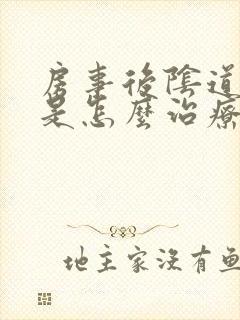 房事後陰道
是怎麼治療
地主家沒有魚